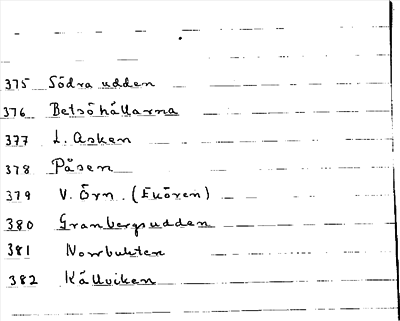 375 Södra udden
376 Betsöhällarna
377 L. Asken
378 Påsen
379 V. Örn. (Enören)
380 Granbergsudden
381 Norrbukten
382 Källviken